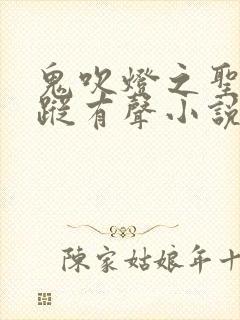 鬼吹燈之聖
蹤有聲小說
陳家姑娘年十